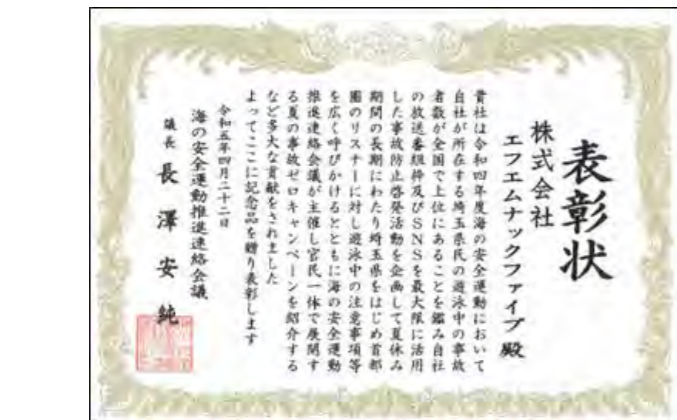 表彰状
株式会社
エフエムナックファイブ 殿
貴社は令和四年度海の安全運動において
自社が所在する埼玉県民の遊泳中の事故
者数が全国で上位にあることを鑑み自社
の放送番組枠及びSNSを最大限に活用
した事故防止啓発活動を企画して夏休み
期間の長期にわたり埼玉県をはじめ首都
圏のリスナーに対し遊泳中の注意事項等
を広く呼びかけるとともに海の安全運動
推進連絡会議が主催し官民一体で展開す
る夏の事故ゼロキャンペーンを紹介する
など多大な貢献をされました
よってここに記念品を贈り表彰します
令和五年四月二十二日
海の安全運動推進連絡会議
議長 長澤安純